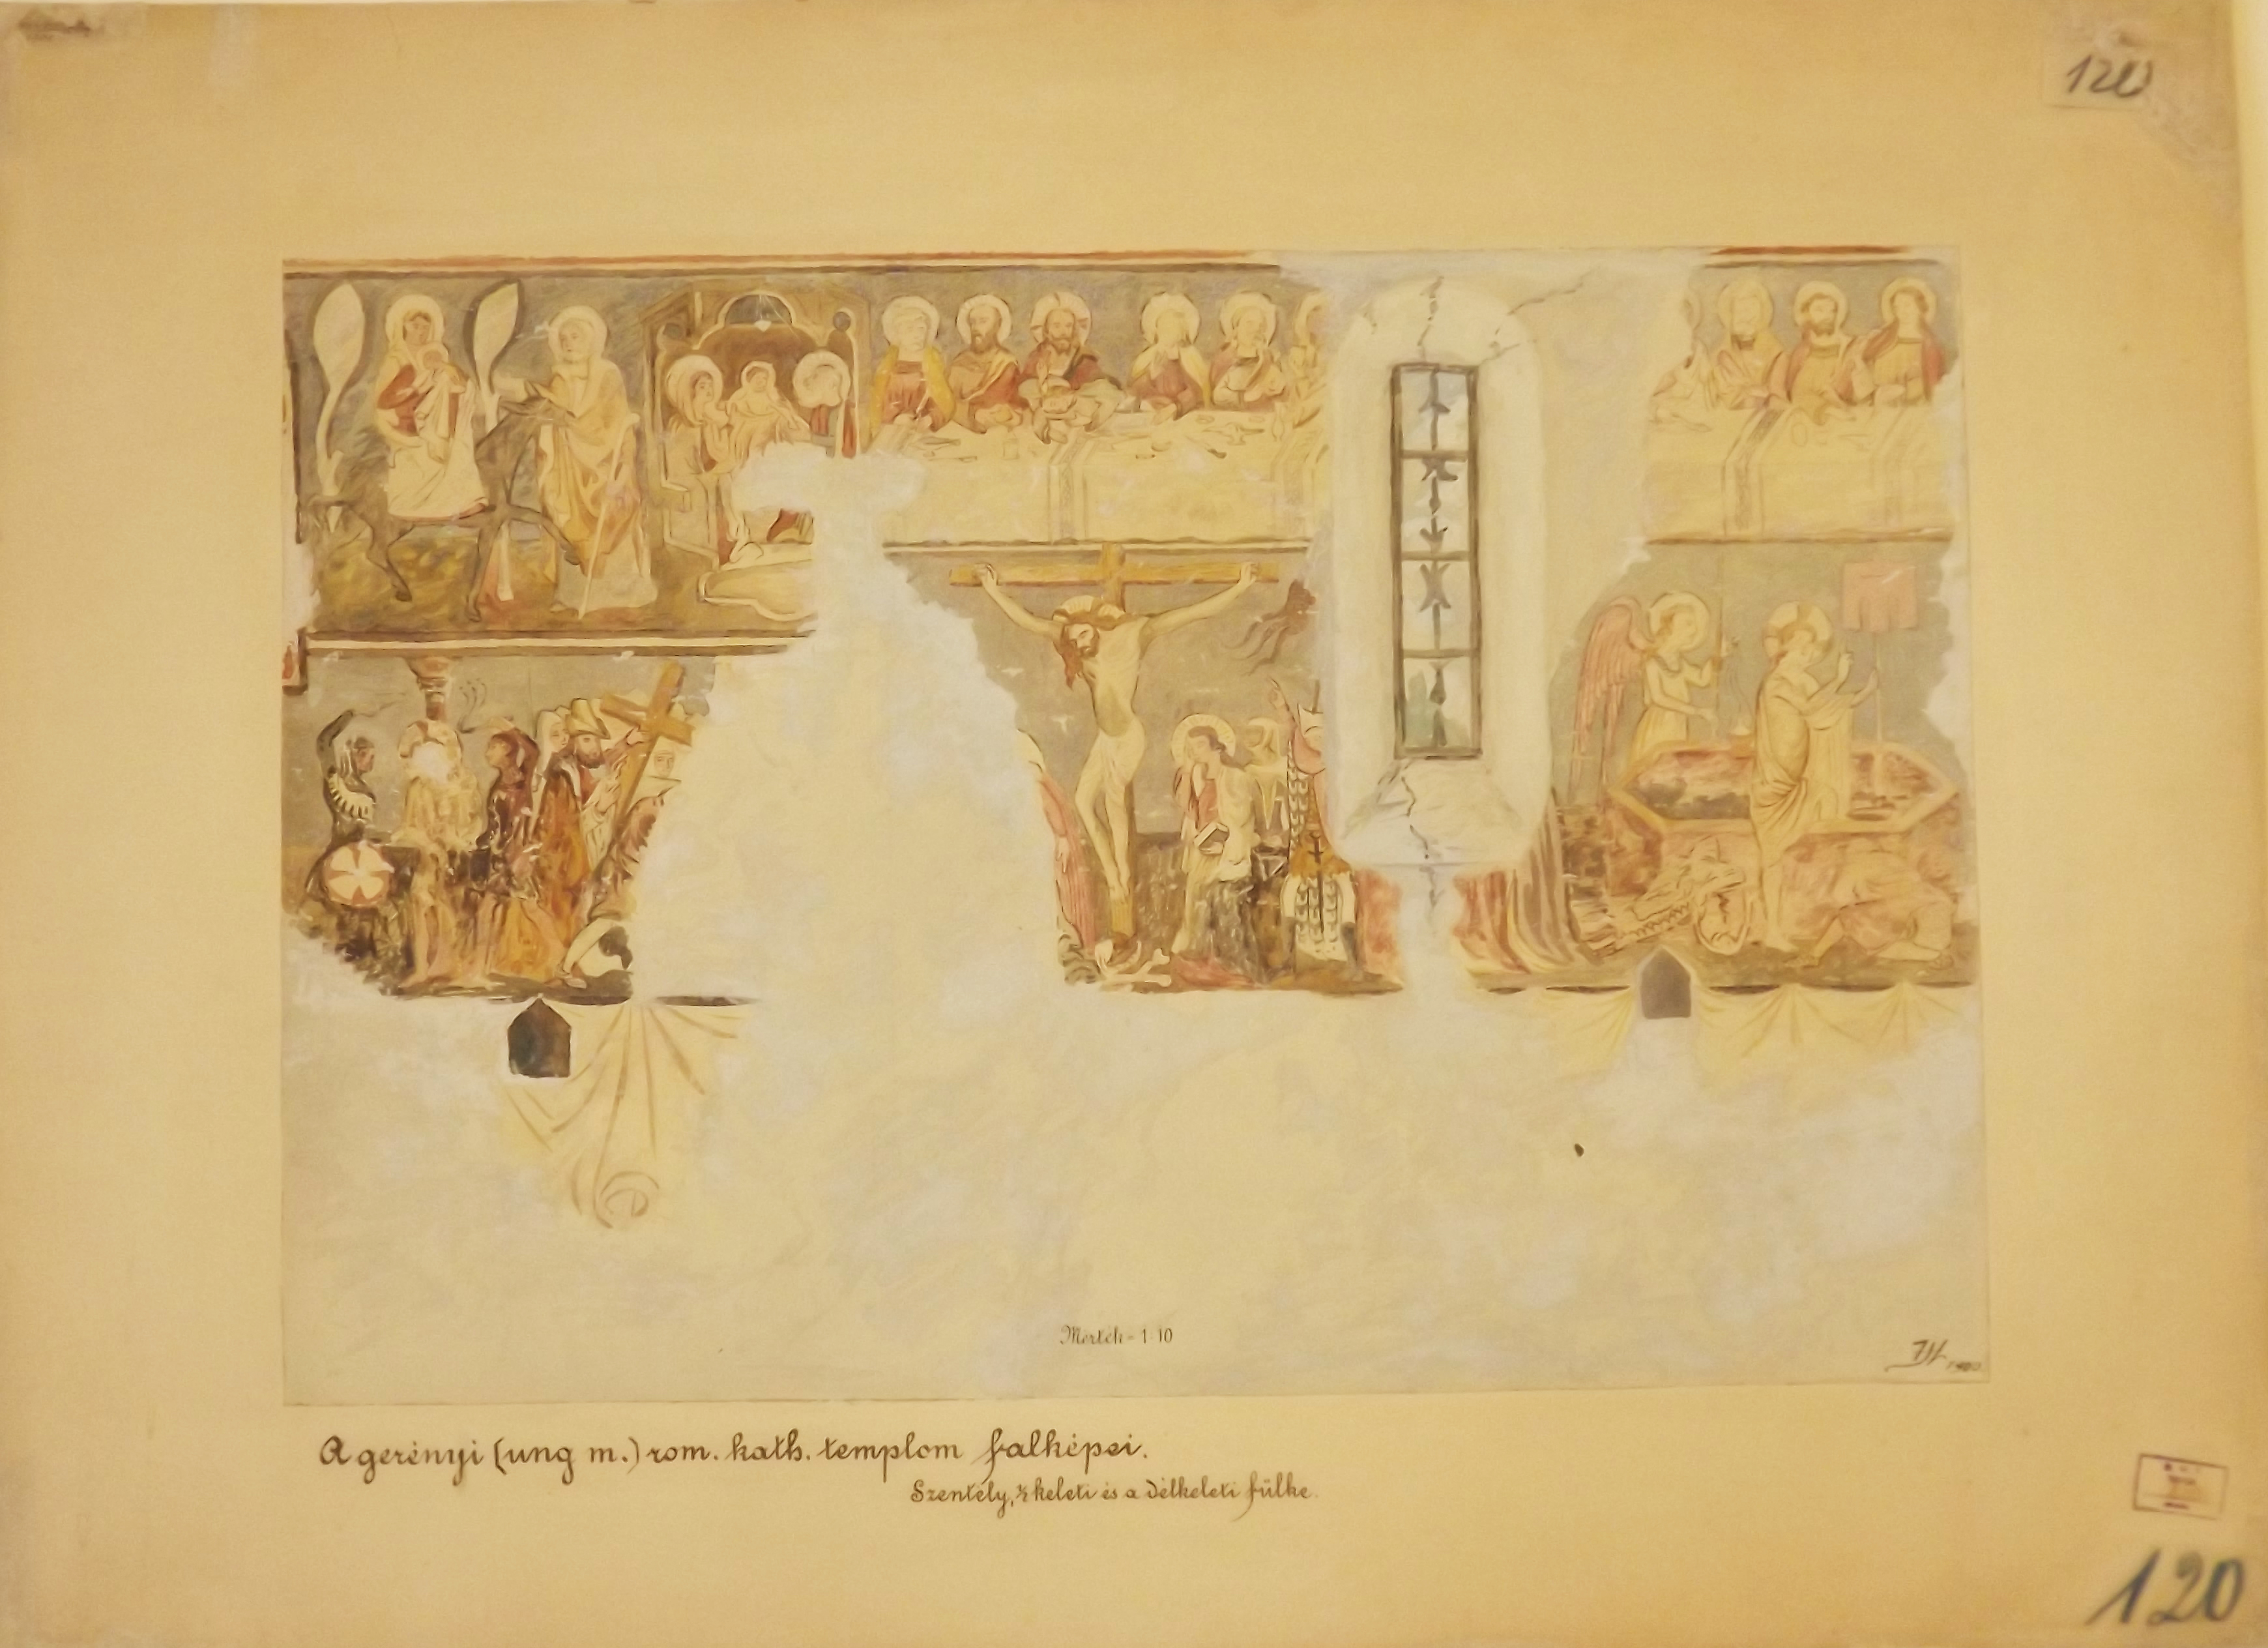 120
Mérték = 1:10
1900
A gerényi (ung m.) rom. kath. templom falképei.
Szentély, ½ keleti és a délkeleti fülke.
120